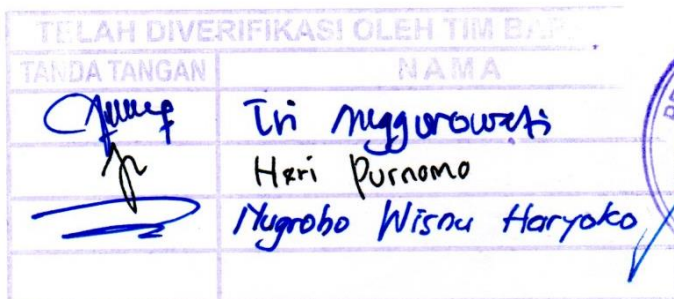 TELAH DIVERIFIKASI OLEH TIM
TANDA TANGAN NAMA
Tri Anggorowati
Heri Purnomo
Nugroho Wisnu Haryoko